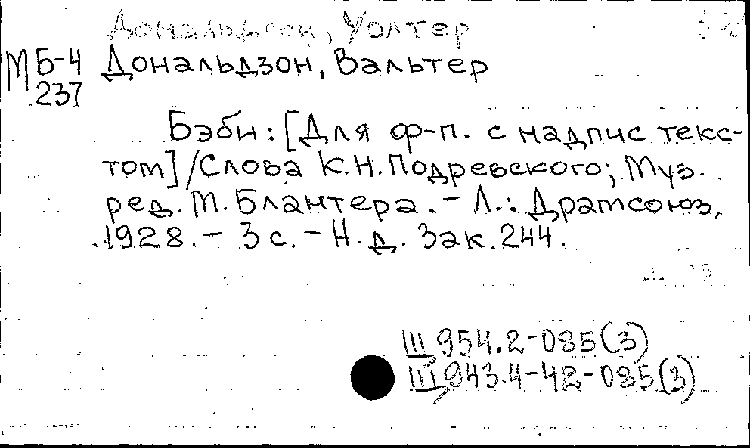 Дональдсон, Уолтер
МБ-4 Дональдзон, Вальтер
237
Бэби: [Для ф-п. с надпис текс-
том] / Слова К.Н. Подревского; Муз.
ред. М. Блантера. - Л.: Драмсоюз,
1928. - 3 с. - Н. д. Зак. 244.
III 954.2-085(3)
III 943.4-42-085(3)